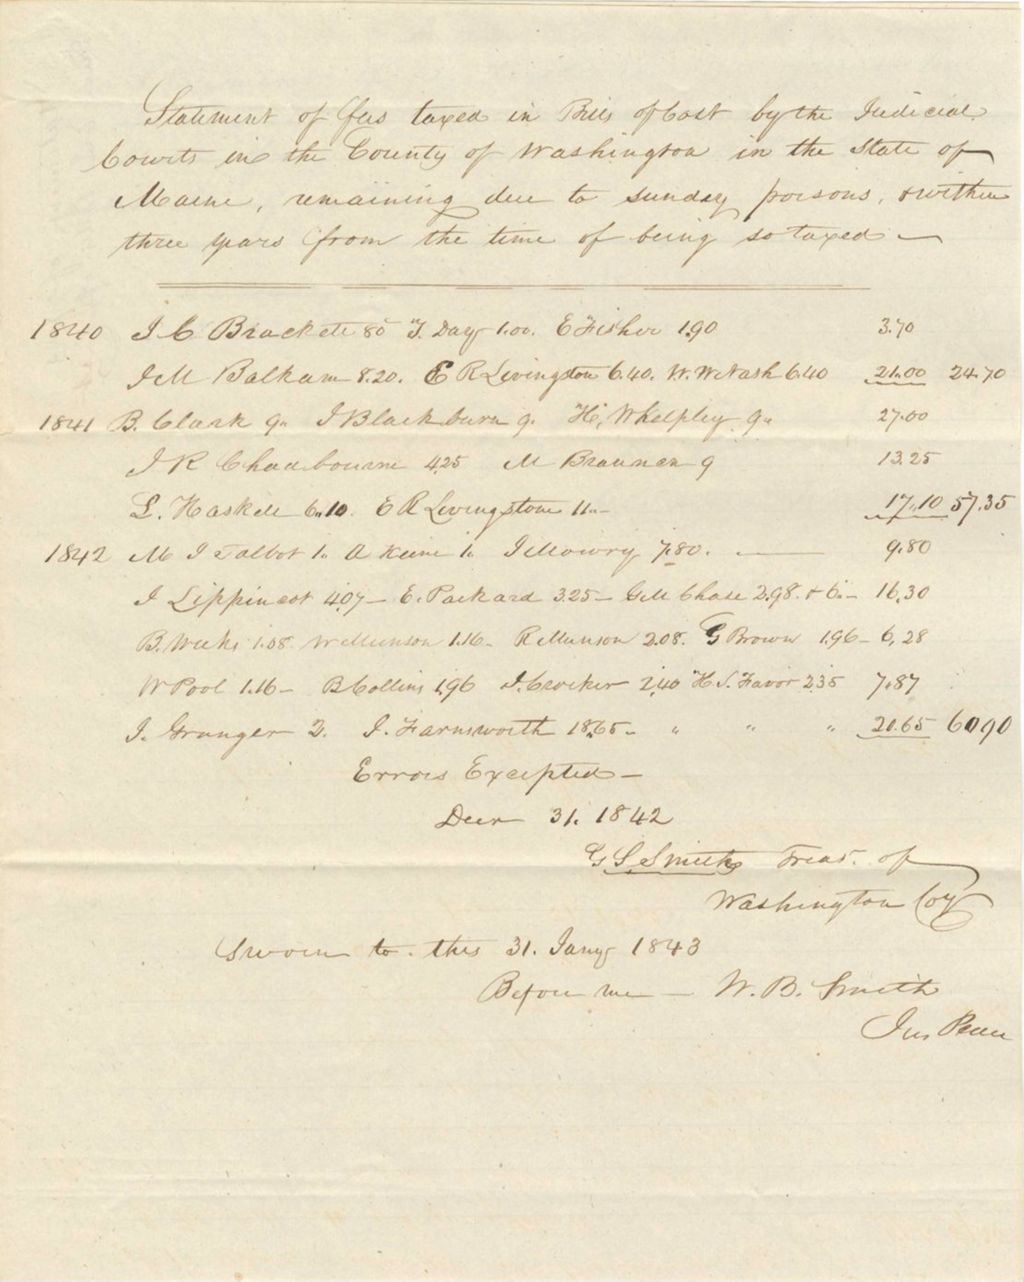 Statement of fees taxed in Bills of Cost by the Judicial
Courts in the County of Washington in the State of
Maine, remaining due to sunday persons, & within
three years from the time of being so taxed —
1840 J C Brackett 80 T. Day 1.00. E Fisher 1.90 3.70
J M Balkam 8.20. E R Livingston 6.40. W. W Nash 6.40 21.00 24.70
1841 B. Clark 9" J Blackburn 9. H, Whelpley 9" 27.00
J R Chadbourne 4.25 M Brannen 9 13.25
L. Haskell 6.10. E R Livingstone 11.- 17.10 57.35
1842 M J Talbot 1. A Keene 1. J Mowry 7.80. — 9.80
J Lippincot 4.07 — E. Packard 3.25 — G M Chase 2.98. & 6. — 16.30
B. Weeks 1.08. W Munson 1.16 — R Munson 2.08. G Brown 1.96 — 6,28
W Pool 1.16 — B Collins 1,96 J. Crocker 2,40 H. S. Favor 2.35 7.87
J. Granger 2. J. Farnsworth 18.65 — " " " 20.65 60 90
Errors Excepted —
Decr 31. 1842
G S. Smith Treas. of
Washington Coy
Sworn to this 31. Jany 1843
Before me — W. B. Smith
Jus Peace